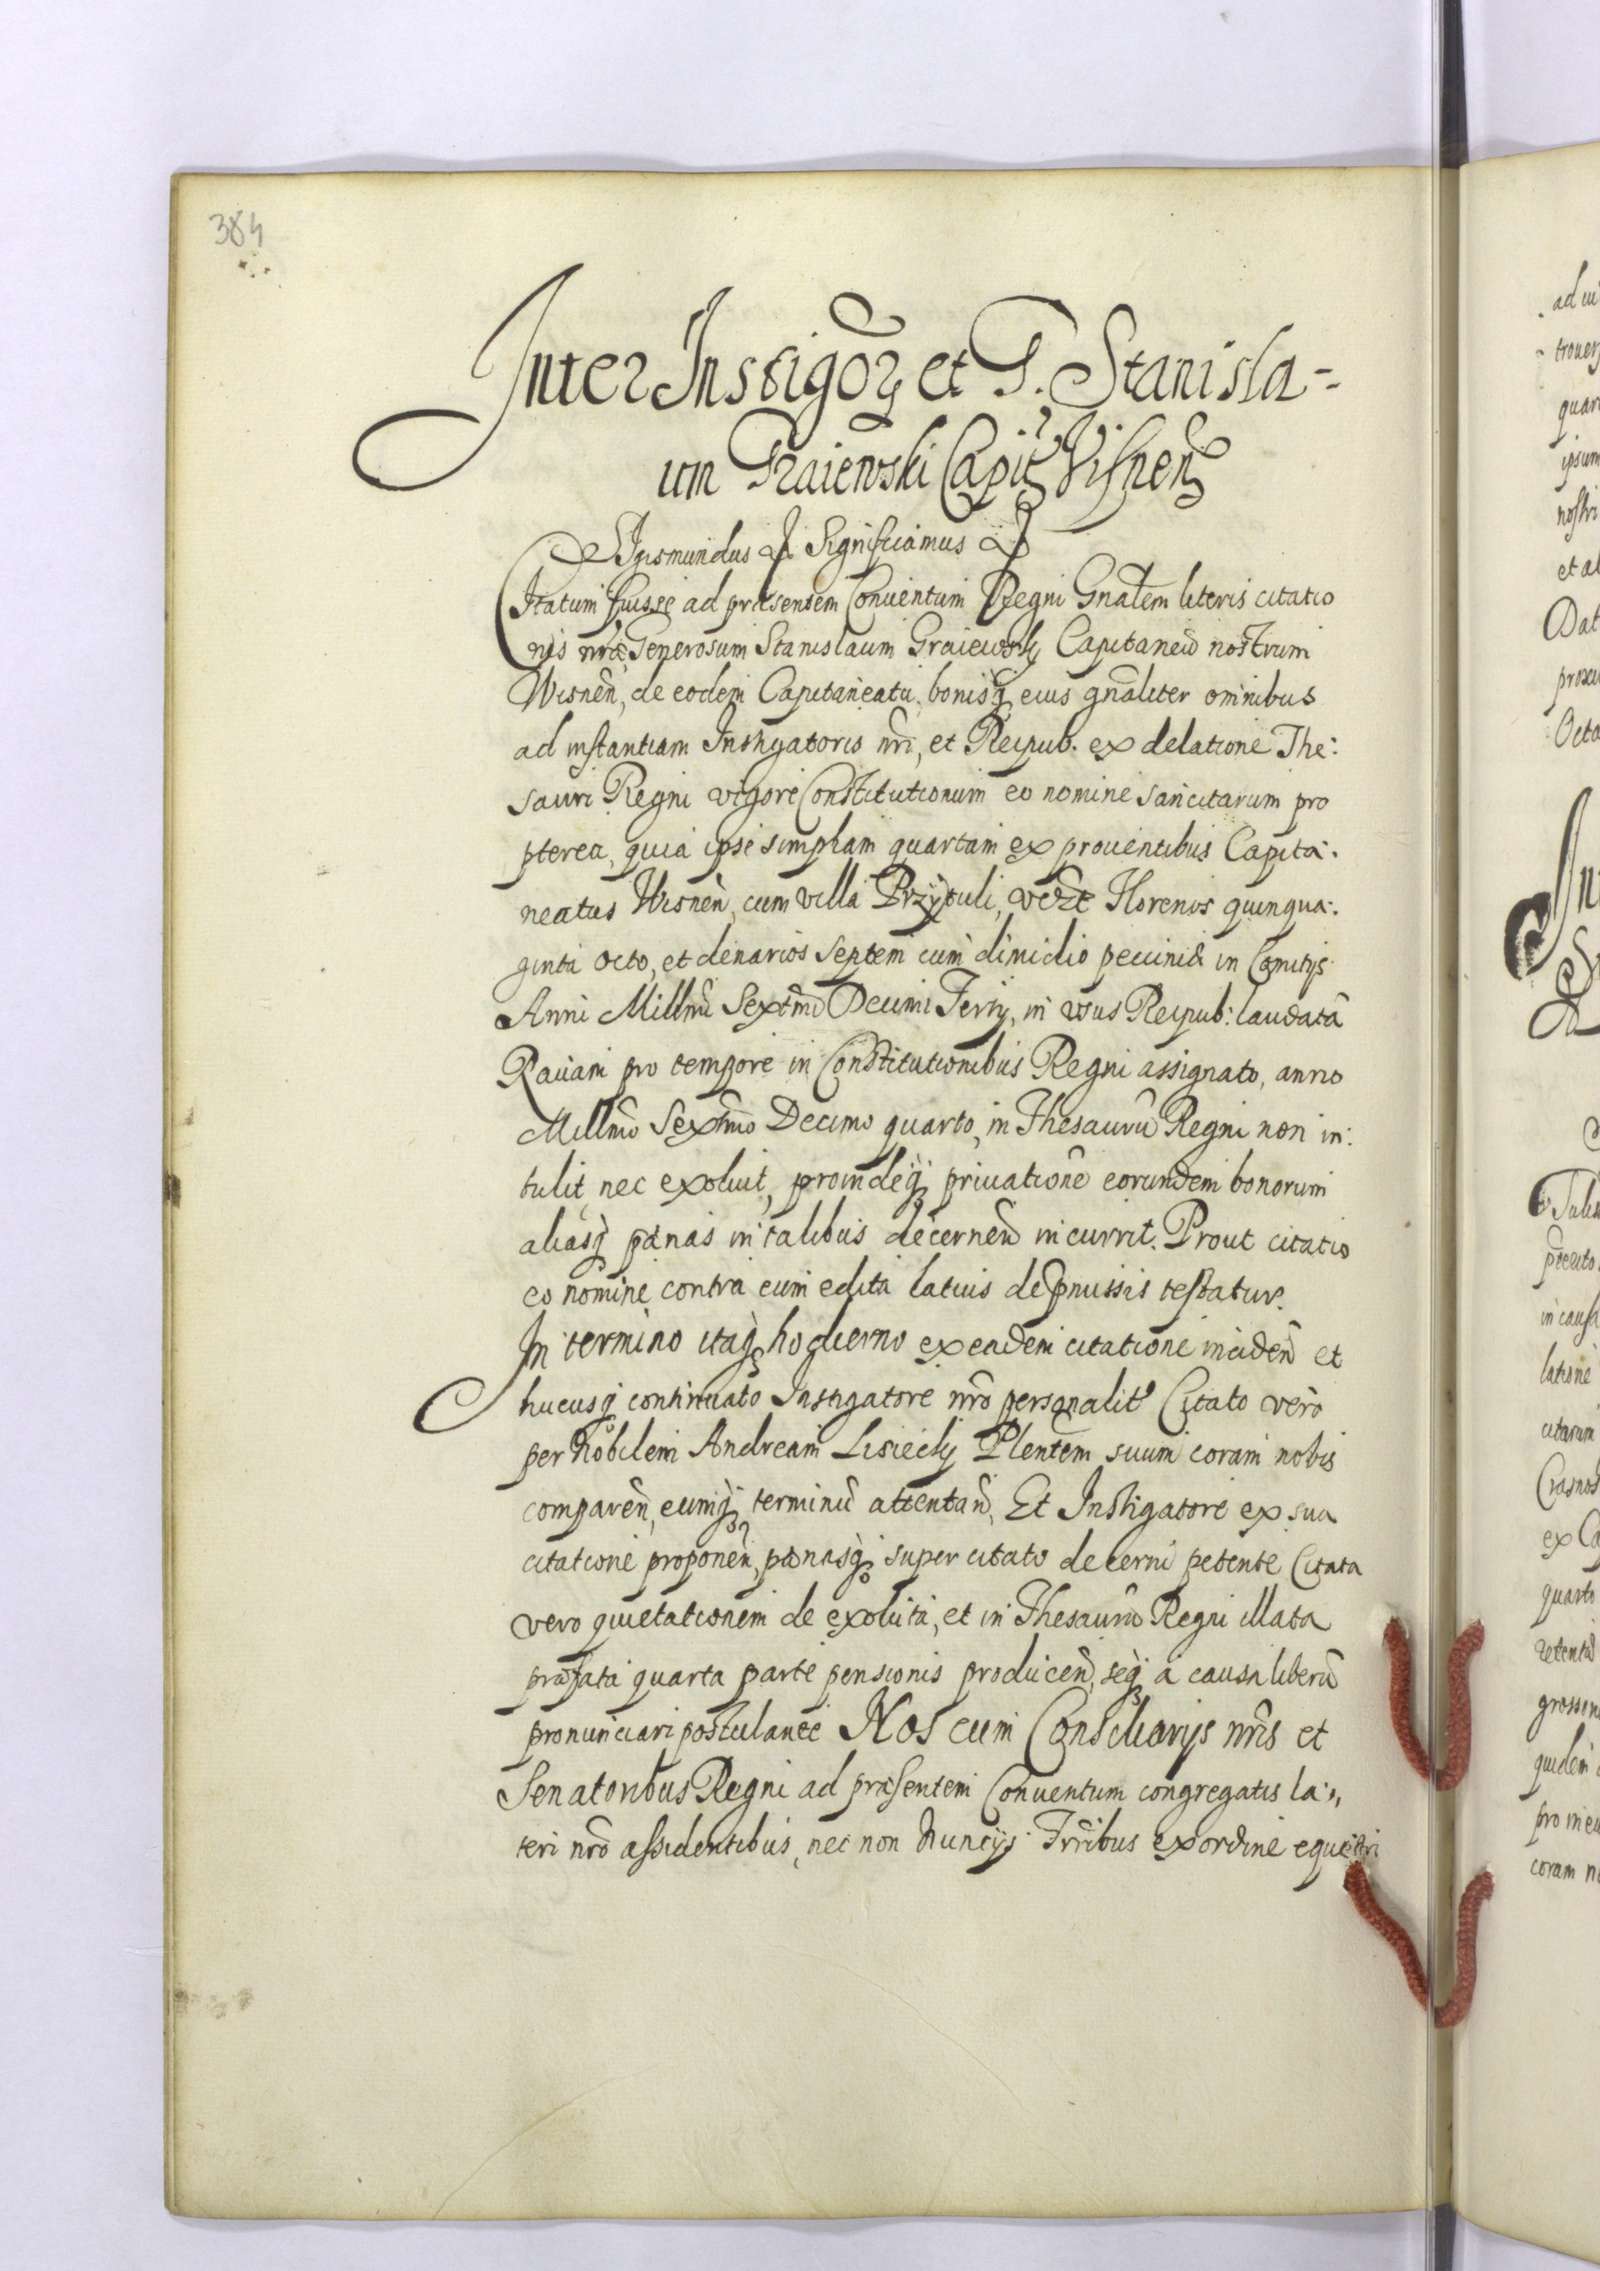 384
Inter Instigõr et G. Stanisla-
um Graiewski Capit Visnen
Sigismundus & Significamus &
Citatum fuisse ad præsentem Conuentum Regni Gnãlem literis citatio
nis nr̃æ Generosum Stanislaum Graiewsky Capitaneũ nostrum
Wisnẽn, de eodem Capitaneatu, bonisq̃ eius gnãliter omnibus
ad instantiam Instigatoris nr̃i, et Reipub. ex delatione The:
sauri Regni vigore Constitutionum eo nomine sancitarum pro
pterea, quia ipse simplam quartam ex prouentibus Capita:
neatus Wisnẽn, cum villa Przytuli, Florenos quinqua:
ginta octo, et denarios septem cum dimidio pecuniæ in Comitijs
Anni Millmĩ Sextmĩ Decimi Terty, in vsus Reipub: laudatã
Rauam pro tempore in Constitutionibus Regni assignato, anno
Millmõ Sextmõ Decimo quarto, in Thesaurũ Regni non in:
tulit, nec exoluit, proindeq̃ priuationẽ eorundem bonorum
aliasq̃ pænas in talibus decernen̄ incurrit. Prout citatio
eo nomine contra eum edita latius de præmissis testatur.
In termino itaq̃ hodierno ex eadem citatione inciden̄ et
hucusq̃ continuato Instigatore nr̃o personalit Citato vero
per Nobilem Andream Lisiecky Plentem suum coram nobis
comparẽn, eumq̃ terminũ attentan̄, Et Instigatore ex sua
citatione proponẽn, pænasq̃ super citato decerni petente Citata
vero quietationem de exoluta, et in Thesaurũ Regni illata
præfata quarta parte pensionis producen̄, seq̃ a causa liberũ
pronunciari postulante Nos cum Consiliarijs nr̃is et
Senatoribus Regni ad præsentem Conuentum congregatis la:,,
teri nr̃o assidentibus, nec non Nuncijs Trr̃ibus ex ordine equestri